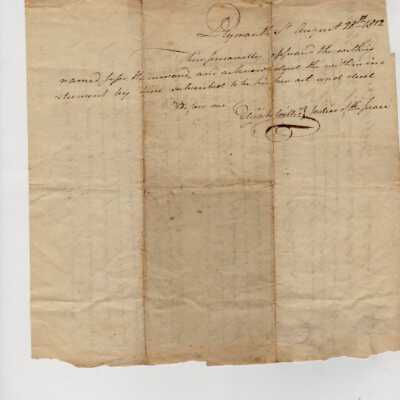 Plymouth ss August 28th 1812
Then personally appeared the within
named and acknowledged the within in
strument by him subscribed to be his free act and deed
Before me Elijah Justice of the Peace